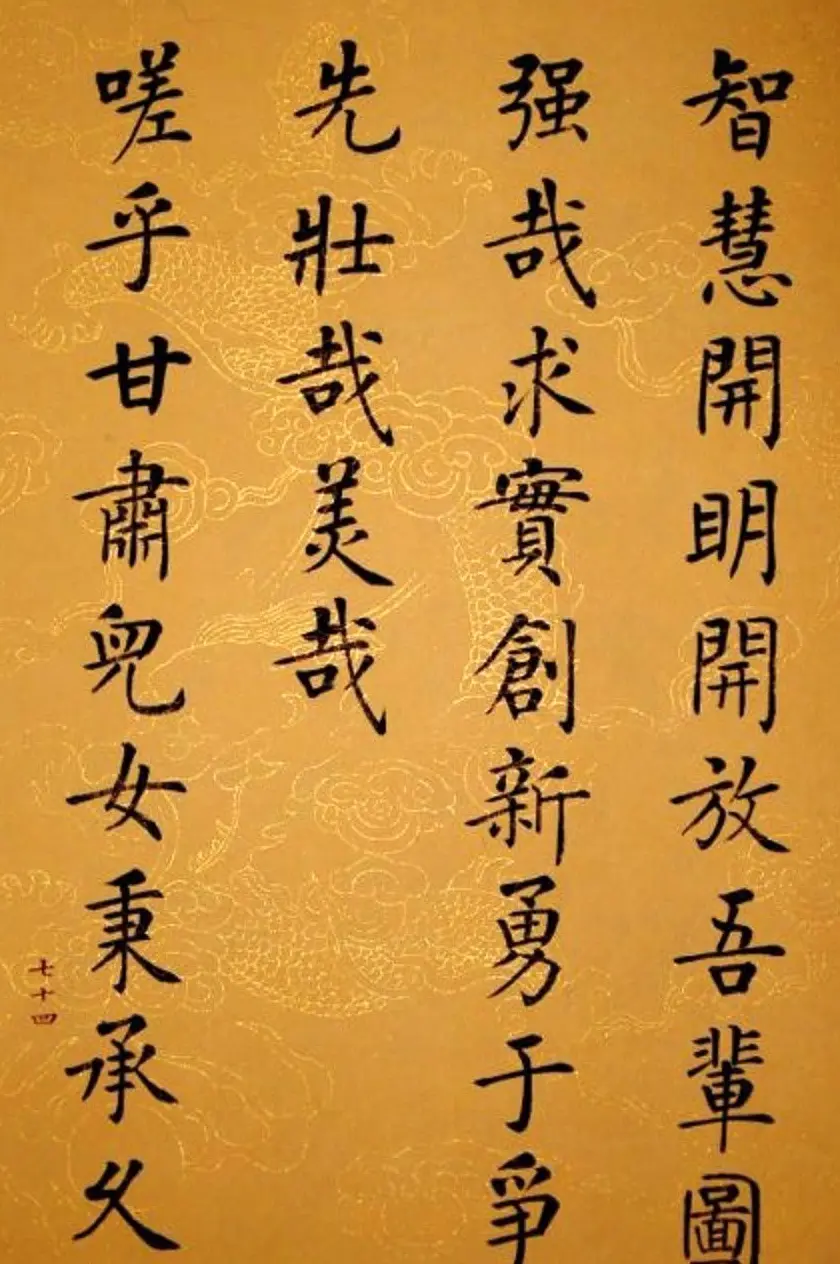 智慧開明開放吾輩圖
强哉求實創新勇于爭
先壯哉美哉
嗟乎甘肅兒女秉承久
七十四